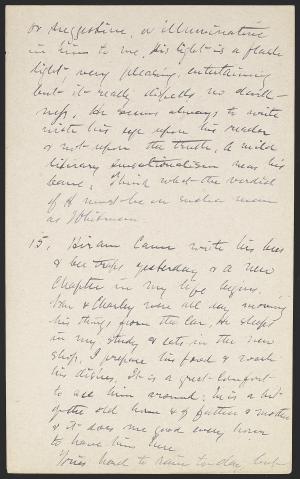 or suggestive, or illuminative
in him to me. His light is a flash
light, very pleasing, entertaining
but it really dispels no dark-
ness. He seems always to write
with his eye upon his reader
& not upon the truth. A mild
literary sensationalism was his
bane. Think what the verdict
of H must be on such a man
as Whitman.
15. Hiram came with his bees
& bee traps yesterday & a new
Chapter in my life begins.
& Charley were all day moving
his things from the Car. He sleeps
in my study & eats in the new
shop. I prepare his food & wash
his dishes. It is a great comfort
to see him around; he is a bit
of the old home & of father & mother
& it does me good every hour
to have him here.
Tries hard to rain to-day, but